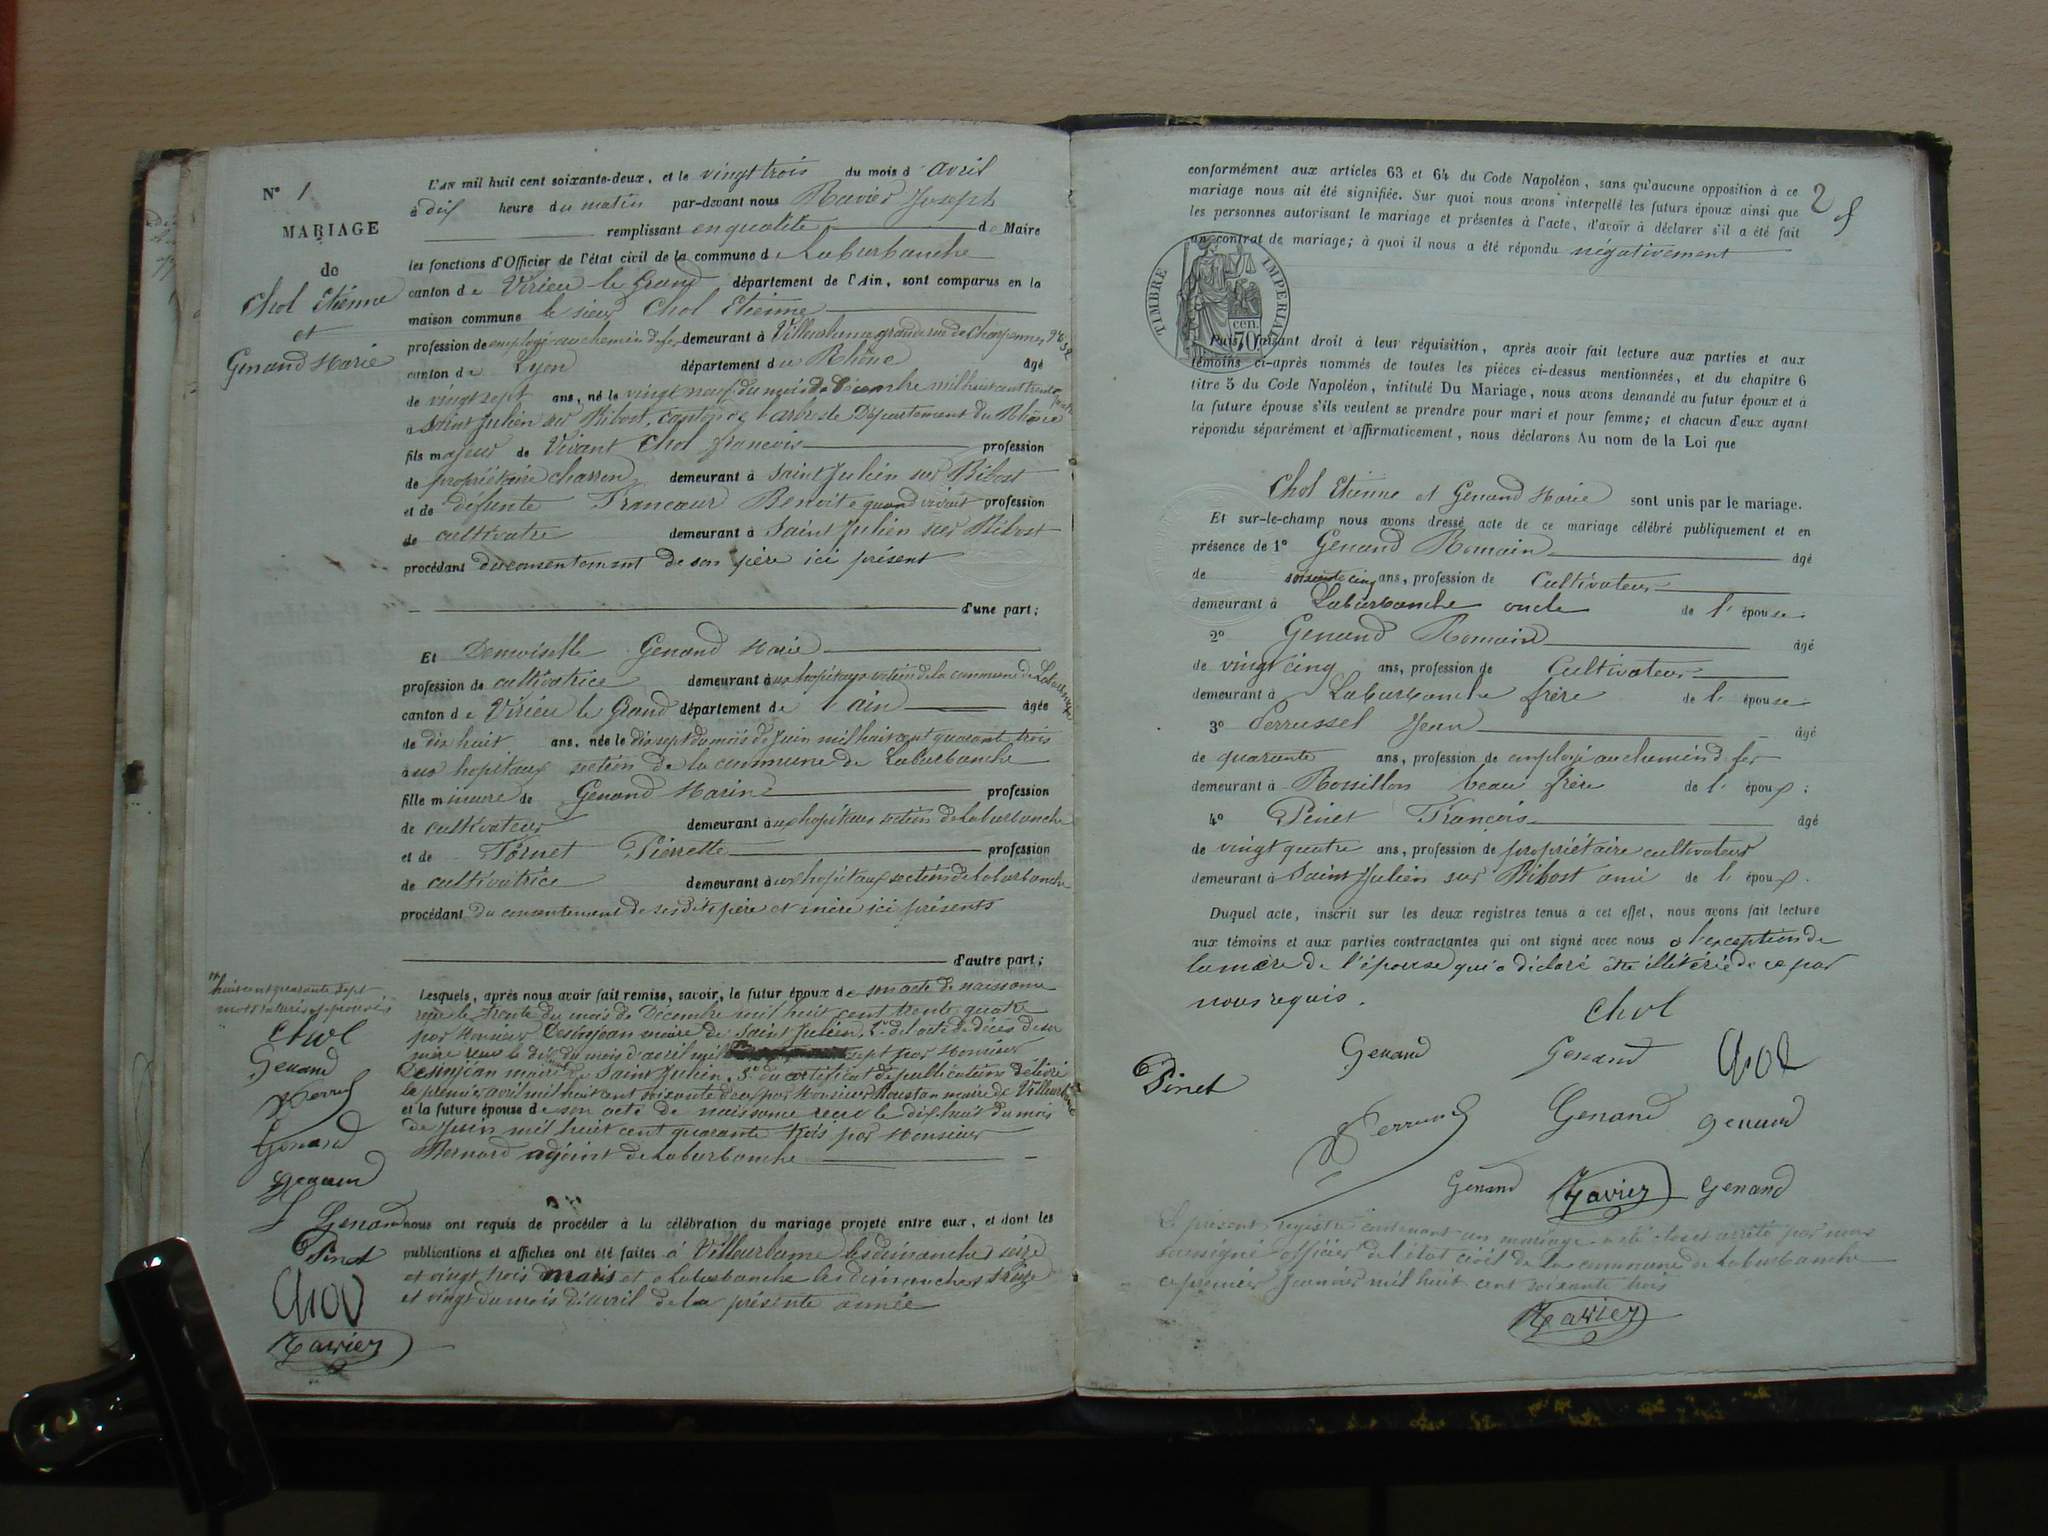 N° 1
MARIAGE
de
Chol Etienne
et
Genand Marie
L'AN mil huit cent soixante-deux, et le vingt trois du mois d'avril
à dix heure du matin par-devant nous Ravier Joseph
remplissant en qualité de Maire
les fonctions d'Officier de l'état civil de la commune de Laburbanche
canton de Virieu le Grand département de l'Ain, sont comparus en la
maison commune le sieur Chol Etienne
profession de employé au chemin de fer demeurant à Villeurbanne grande rue de Charpennes
canton de Lyon département du Rhône âgé
de vingt sept ans, né le vingt neuf du mois de Décembre mil huit cent trente quatre
à Saint Julien sur Bibost, canton de l'arbresle Département du Rhône
fils majeur de Vivant Chol françois profession
de propriétaire charron demeurant à Saint Julien sur Bibost
et de défunte Francoeur Benoite quand vivait profession
de cultivatre demeurant à Saint Julien sur Bibost
procédant du consentement de son père ici présent
d'une part;
Et Demoiselle Genand Marie
profession de cultivatrice demeurant aux hopitaux section de la commune de Laburbanche
canton de Virieu le Grand département de l'ain âgée
de dix huit ans, née le dix sept du mois de Juin mil huit cent quarante trois
aux hopitaux section de la commune de Laburbanche
fille mineure de Genand Marin profession
de cultivateur demeurant aux hopitaux section de Laburbanche
et de Tornet Pierrette profession
de cultivatrice demeurant aux hopitaux section de Laburbanche
procédant du consentement de ses dits père et mère ici présents
d'autre part;
huit cent quarante sept
mots raturés approuvés
Chol
Genand
Genand
genand
Genand
Pinet
Chol
Ravier
Lesquels, après nous avoir fait remise, savoir, le futur époux de son acte de naissance
reçu le trente du mois de Décembre mil huit cent trente quatre
par Monsieur Cesinjean maire de Saint Julien. 2° de l'acte de décès de sa
mère reçu le dix du mois d'avril mil sept par Monsieur
Cesinjean maire de Saint Julien, 3° du certificat de publications délivré
le premier avril mil huit cent soixante deux par Monsieur maire de Villeurbanne
et la future épouse de son acte de naissance reçu le dix huit du mois
de Juin mil huit cent quarante trois par Monsieur
Bernard adjoint de Laburbanche
nous ont requis de procéder à la célébration du mariage projeté entre eux, et dont les
publications et affiches ont été faites à Villeurbanne les dimanches seize
et vingt trois mars et a Laburbanche les dimanches treize
et vingt du mois d'avril de la présente année
2
conformément aux articles 63 et 64 du Code Napoléon, sans qu'aucune opposition à ce
mariage nous ait été signifiée. Sur quoi nous avons interpellé les futurs époux ainsi que
les personnes autorisant le mariage et présentes à l'acte, d'avoir à déclarer s'il a été fait
un contrat de mariage; à quoi il nous a été répondu négativement
TIMBRE IMPERIAL
70 cen.
Puis, faisant droit à leur réquisition, après avoir fait lecture aux parties et aux
témoins ci-après nommés de toutes les pièces ci-dessus mentionnées, et du chapitre 6
titre 5 du Code Napoléon, intitulé Du Mariage, nous avons demandé au futur époux et à
la future épouse s'ils veulent se prendre pour mari et pour femme; et chacun d'eux ayant
répondu séparément et affirmativement, nous déclarons Au nom de la Loi que
Chol Etienne et Genand Marie sont unis par le mariage.
Et sur-le-champ nous avons dressé acte de ce mariage célébré publiquement et en
présence de 1° Genand Romain âgé
de soixante cinq ans, profession de Cultivateur
demeurant à Laburbanche oncle de l'épouse
2° Genand Romain âgé
de vingt cinq ans, profession de Cultivateur
demeurant à Laburbanche frère de l'épouse
3° Perrussel Jean âgé
de quarante ans, profession de employé au chemin de fer
demeurant à Rossillon beau frère de l'époux;
4° Pinet François âgé
de vingt quatre ans, profession de propriétaire cultivateur
demeurant à Saint Julien sur Bibost ami de l'époux.
Duquel acte, inscrit sur les deux registres tenus à cet effet, nous avons fait lecture
aux témoins et aux parties contractantes qui ont signé avec nous a l'exception de
la mère de l'épouse qui a déclaré être illitérée de ce par
nous requis.
Chol
Genand Genand Chol
Pinet
Genand genand
Genand Ravier Genand
Le présent registre contenant un mariage a été clos et arrêté par nous
soussigné officier de l'état civil de la commune de Laburbanche
ce premier Janvier mil huit cent soixante trois
Ravier